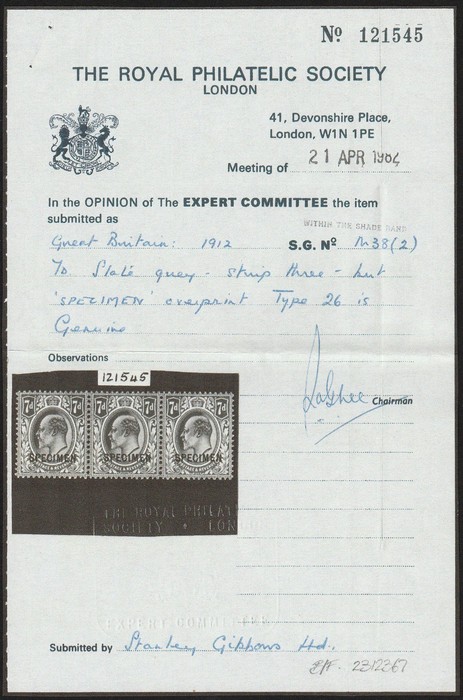 Nº 121545
THE ROYAL PHILATELIC SOCIETY
LONDON
41, Devonshire Place,
London, W1N 1PE
Meeting of 21 APR 1984
In the OPINION of The EXPERT COMMITTEE the item
submitted as
WITHIN THE SHADE BAND
Great Britain: 1912 S.G. Nº M38(2)
7D. Slate grey - strip three - but
'SPECIMEN' overprint Type 26 is
Genuine
Observations
121545
Chairman
7d 7d 7d 7d 7d 7d
SPECIMEN SPECIMEN SPECIMEN
THE ROYAL PHILAT
SOCIETY • LONDO
EXPERT COMMITTEE
Submitted by Stanley Gibbons Ltd.
2312367